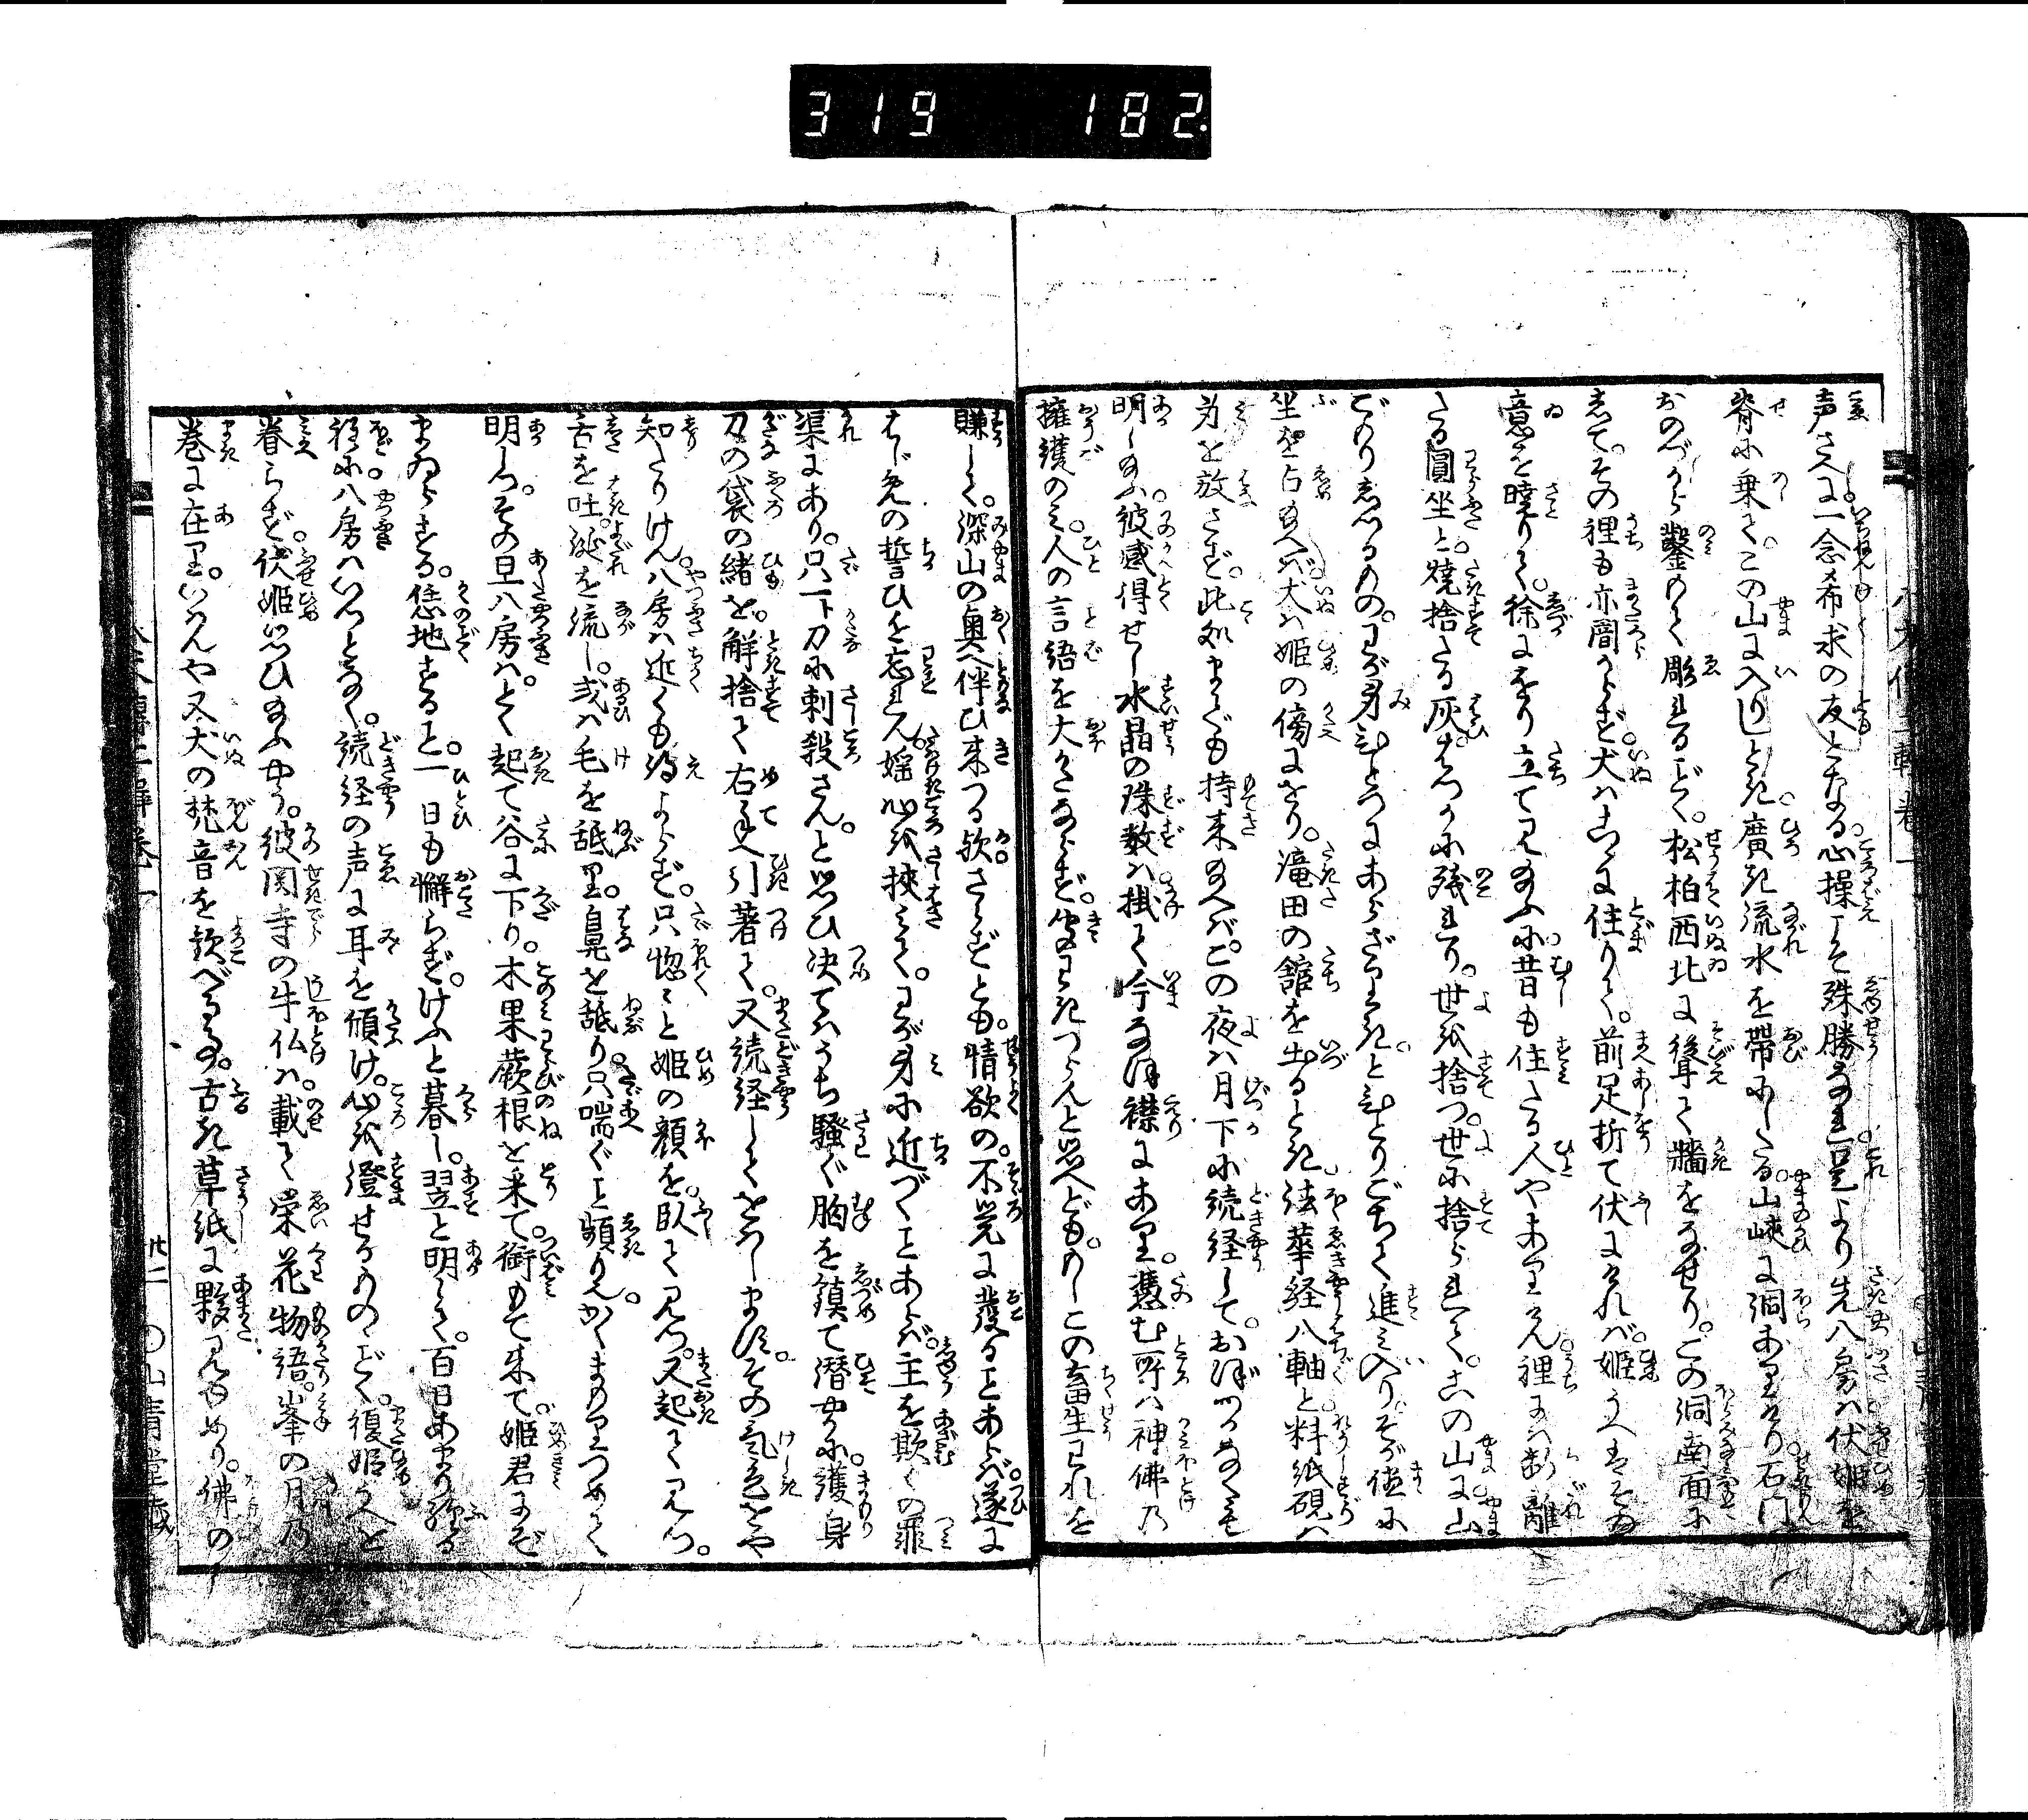 319 182.
声さへに一念希求の友となる。心操こそ殊勝なれ。是より先八房は伏姫を
背に乗して。この山に入りしとき。廣き流水を帯にしたる。山峡に洞ありけり。石門
おのづから鑿のして彫れるごとく。松柏西北に聳て牆をなせり。この洞南面に
して。その裡も亦闇からず。犬はこゝに住りて。前足折て伏にければ。姫うへはその
意を暁りて。徐にをり立て見給ふに。昔も住たる人やありけん。裡には断離
たる圓坐と。焼捨たる灰はつかに残れり。世を捨つ。世に捨られて。この山に山
ごもりせしもの。わが身ひとつにあらざりき。とひとりごちて進み入り。そが儘に
坐を占給へば。犬は姫の傍にをり。滝田の館を出るとき。法華経八軸と。料紙硯は
身を放さず。此処までも持来給へば。この夜は月下に読経して。おぼつかなくも
明し給ふ。彼感得せし水晶の珠数は掛て今なほ襟にあり。憑む所は神佛の
擁護のみ。人の言語を大かたならず。聞わきつらんと思へども。もしこの畜生われを
賺して。深山の奥へ伴ひ来つる歟。さらずとも。情欲の。不覚に發ることあらば。遂に
はじめの誓ひを忘れて婬心を挟みて。わが身に近づくことあらば。主を欺くの罪
渠にあり。只一下刀に刺殺さん。と思ひ决てはうち騒ぐ胸を鎮て潜やかに。護身
刀の袋の緒を。解捨て右手へ引著て。又読経しておはします。その気色をや
知たりけん。八房は近くも得よらず。只惚々と姫の顔を。臥て見つ。又起て見つ。
舌を吐。涎を流し。或は毛を舐り。鼻を舐り。只喘ぐこと頻り也。かくまもりつめて
明しつ。その旦八房は。とく起て谷に下り。木果蕨根を采て。銜もて来て。姫君にぞ
まゐらする。恁地すること。一日も懈らず。けふと暮し。翌と明して。百日あまり経る
程に。八房はいつとなく。読経の声に耳を傾け。心を澄せるものゝごとく。復姫うへを
眷らず。伏姫思ひ給ふやう。彼関寺の牛仏は。載て栄花物語。峯の月の
巻に在り。いはんや又犬の梵音を歓べるもの。古き草紙に夥見ゆめり。佛の